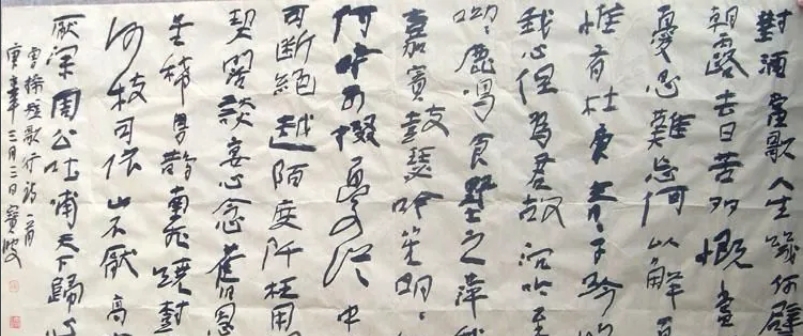 對酒當歌人生幾何譬
朝露去日苦多慨當
憂思難忘何以解
惟有杜康青々子衿
我心但為君故沉吟至
呦々鹿鳴食野之苹我
嘉賓鼓瑟吹笙明々
何時可掇憂從中
可斷絕越陌度阡枉用
契闊談宴心念舊恩
星稀烏鵲南飛繞樹
何枝可依山不厭高
厭深周公吐哺天下歸
曹操短歌行詩一首
三月三日